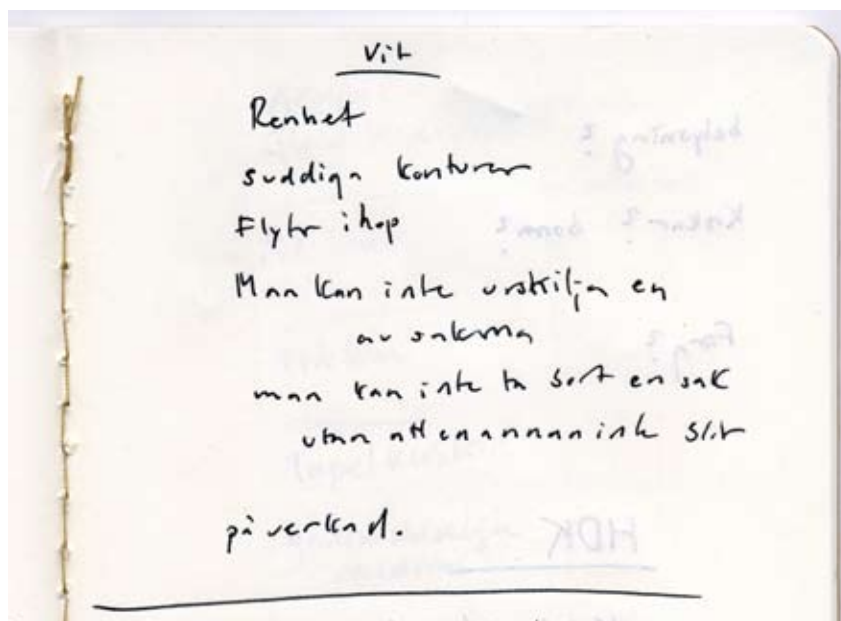 Vit
Renhet
suddiga konturer
Flyter ihop
Man kan inte urskilja en
av sakerna
man kan inte ta bort en sak
utan att en annan inte blir
påverkad.
belysning?
Kostar? barn?
Färg?
HDK